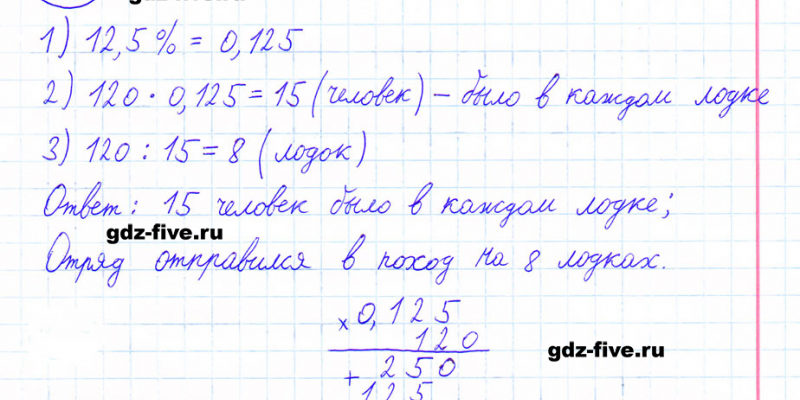 1) 12,5% = 0,125
2) 120 · 0,125 = 15 (человек) – было в каждой лодке
3) 120 : 15 = 8 (лодок)
Ответ: 15 человек было в каждой лодке;
gdz-five.ru
Отряд отправился в поход на 8 лодках.
× 0,125
120
gdz-five.ru
+ 250
125